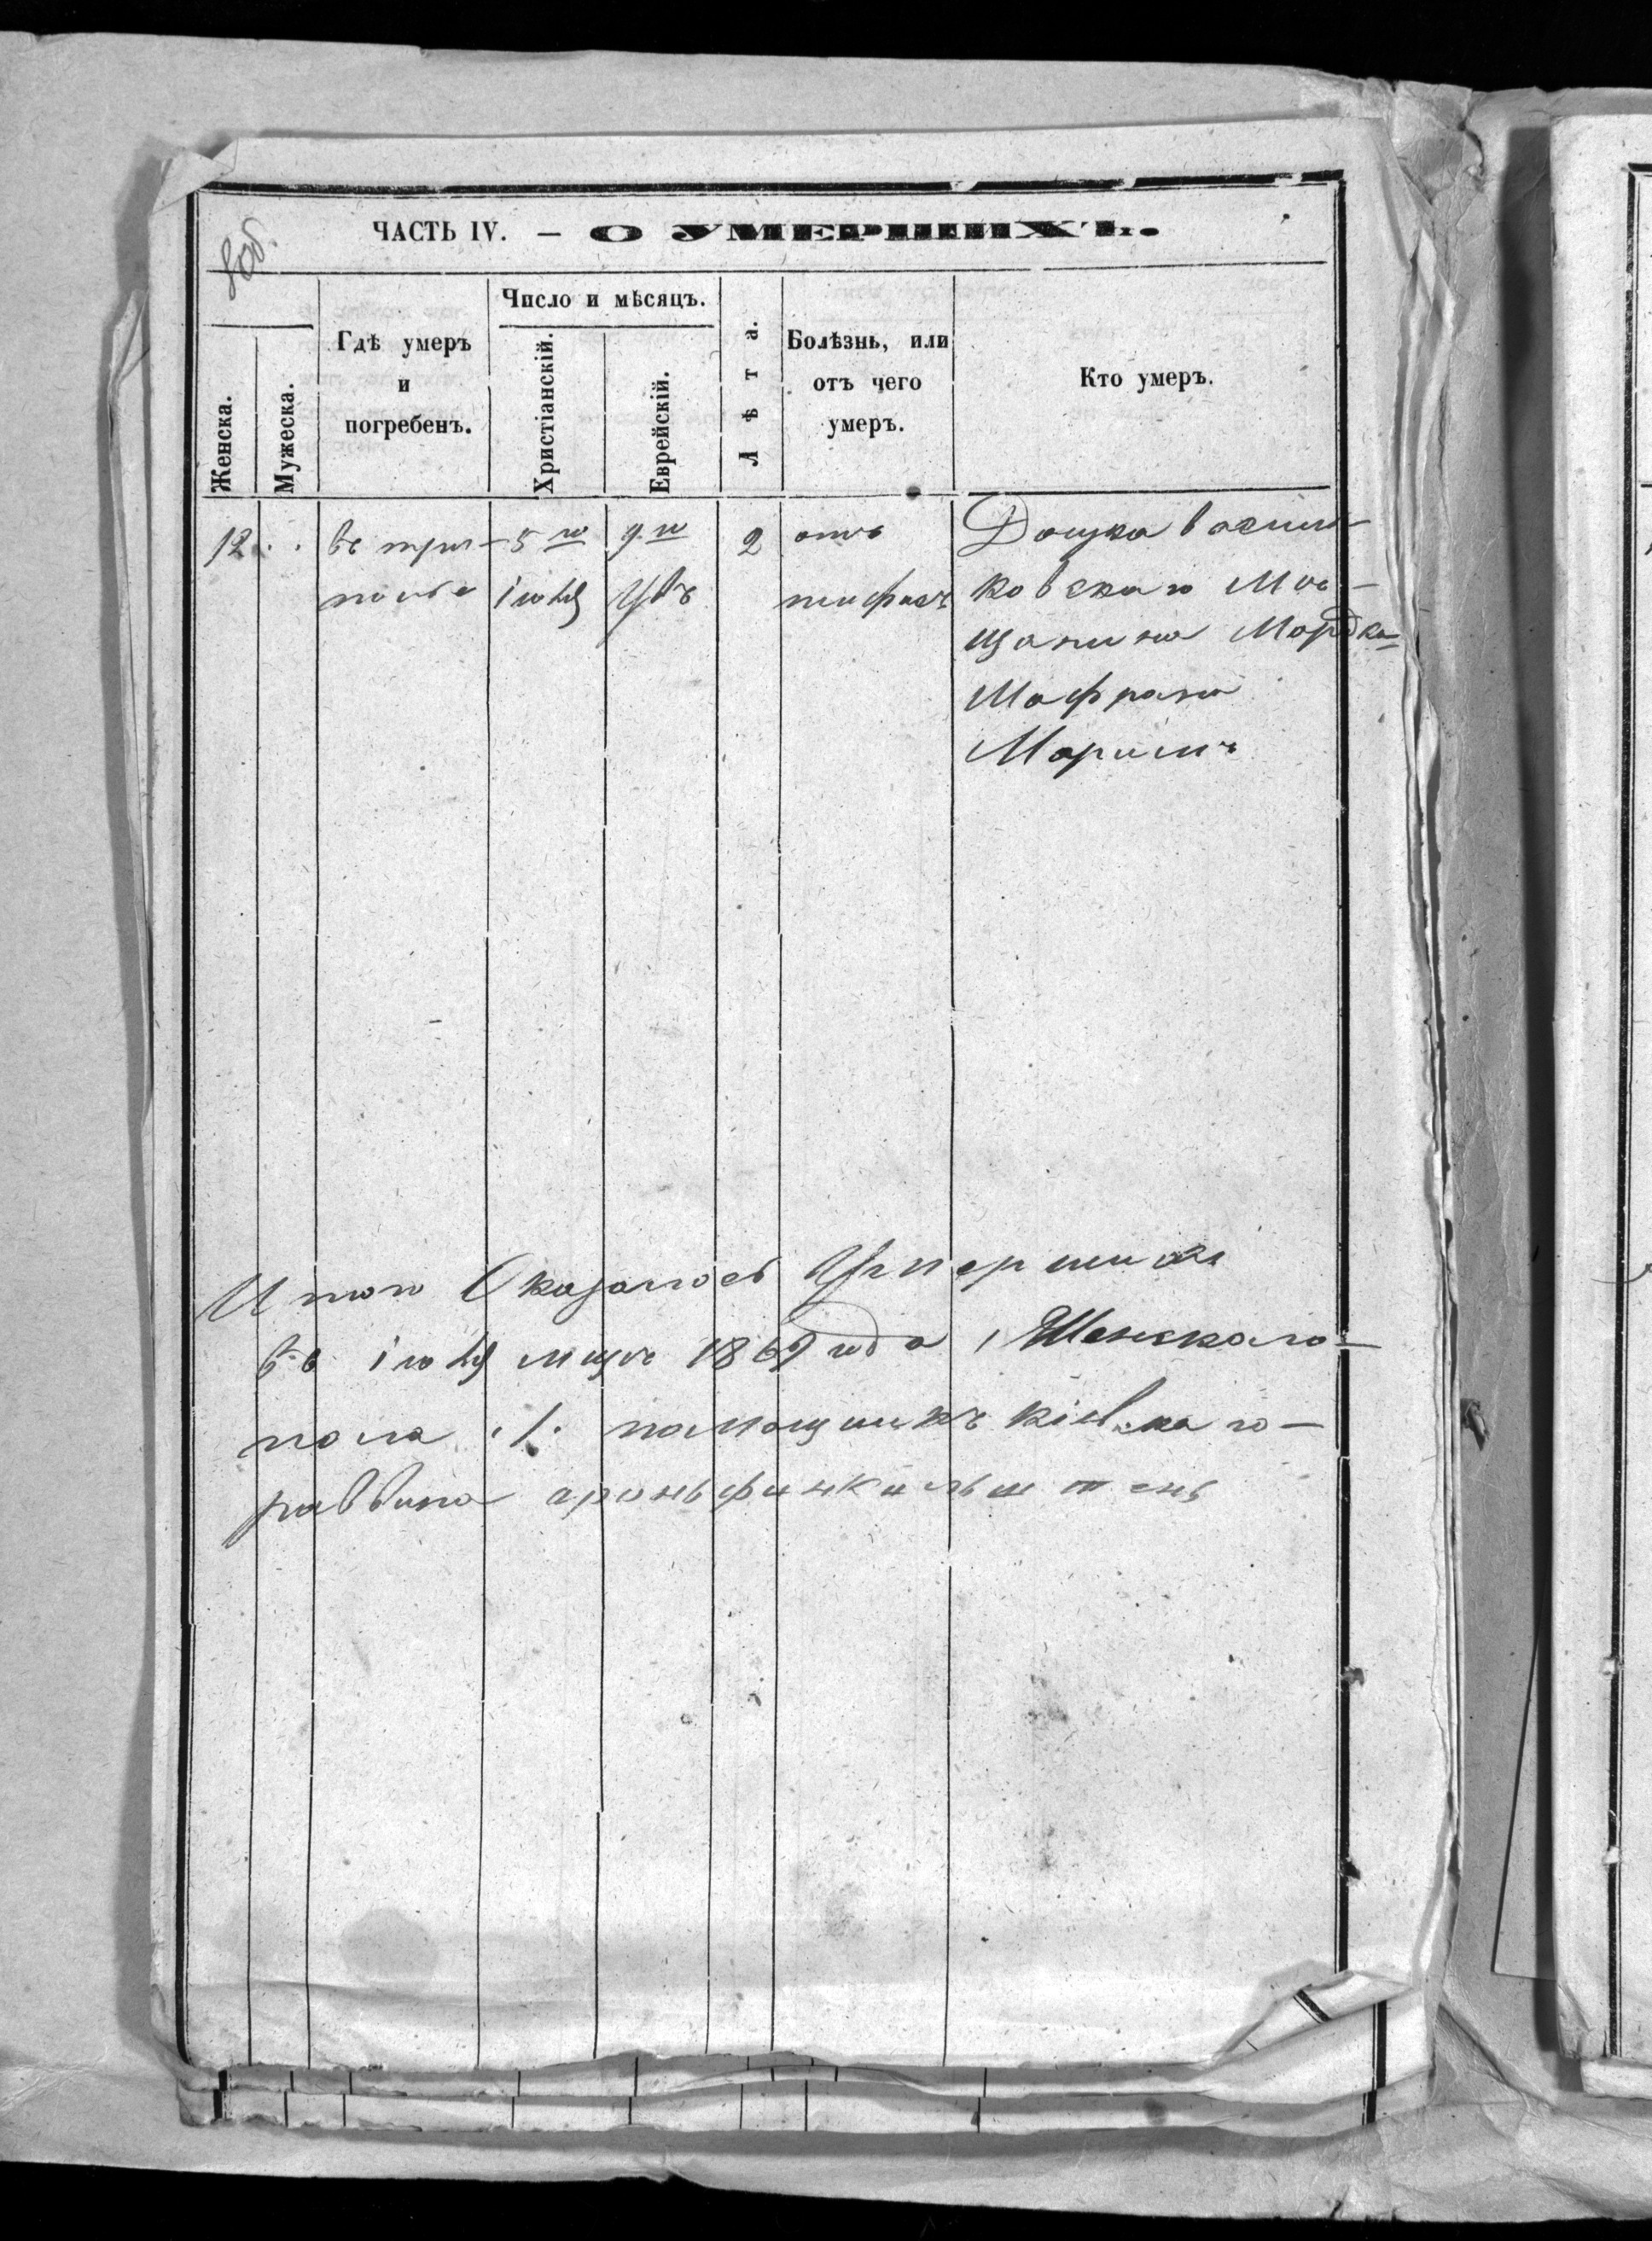 8об.
ЧАСТЬ IV. — О УМЕРШИХЪ.
Женска.
Мужеска.
Гдѣ умеръ
и
погребенъ.
Число и мѣсяцъ.
Христіанскій.
Еврейскій.
Лѣта.
Болѣзнь, или
отъ чего
умеръ.
Кто умеръ.
12 . .
въ трі-
полье
5го
іюля
9го
2
отъ
тифусъ
Дочка васил-
ковскаго Мѣ-
щанина Мордка
Шафрана
Маріимъ
Итого Оказалось Умершихъ
въ іюля мцѣ 1869 года 1 Женскаго
пола .1. памощникъ кіевскаго
раввина аронь финкильштень